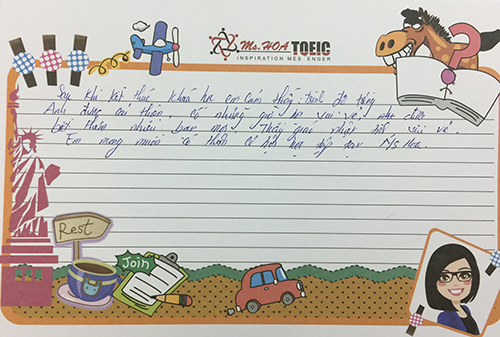 Ms. HOA TOEIC
INSPIRATION MESSENGER
Sau khi kết thúc khóa học em cảm thấy trình độ tiếng
Anh được cải thiện, có những giờ học vui vẻ,
thêm nhiều bạn mới. Thầy giáo nhiệt tình vui vẻ.
Em mong muốn có thêm cơ hội học tiếp Ms Hoa.
Rest
Join